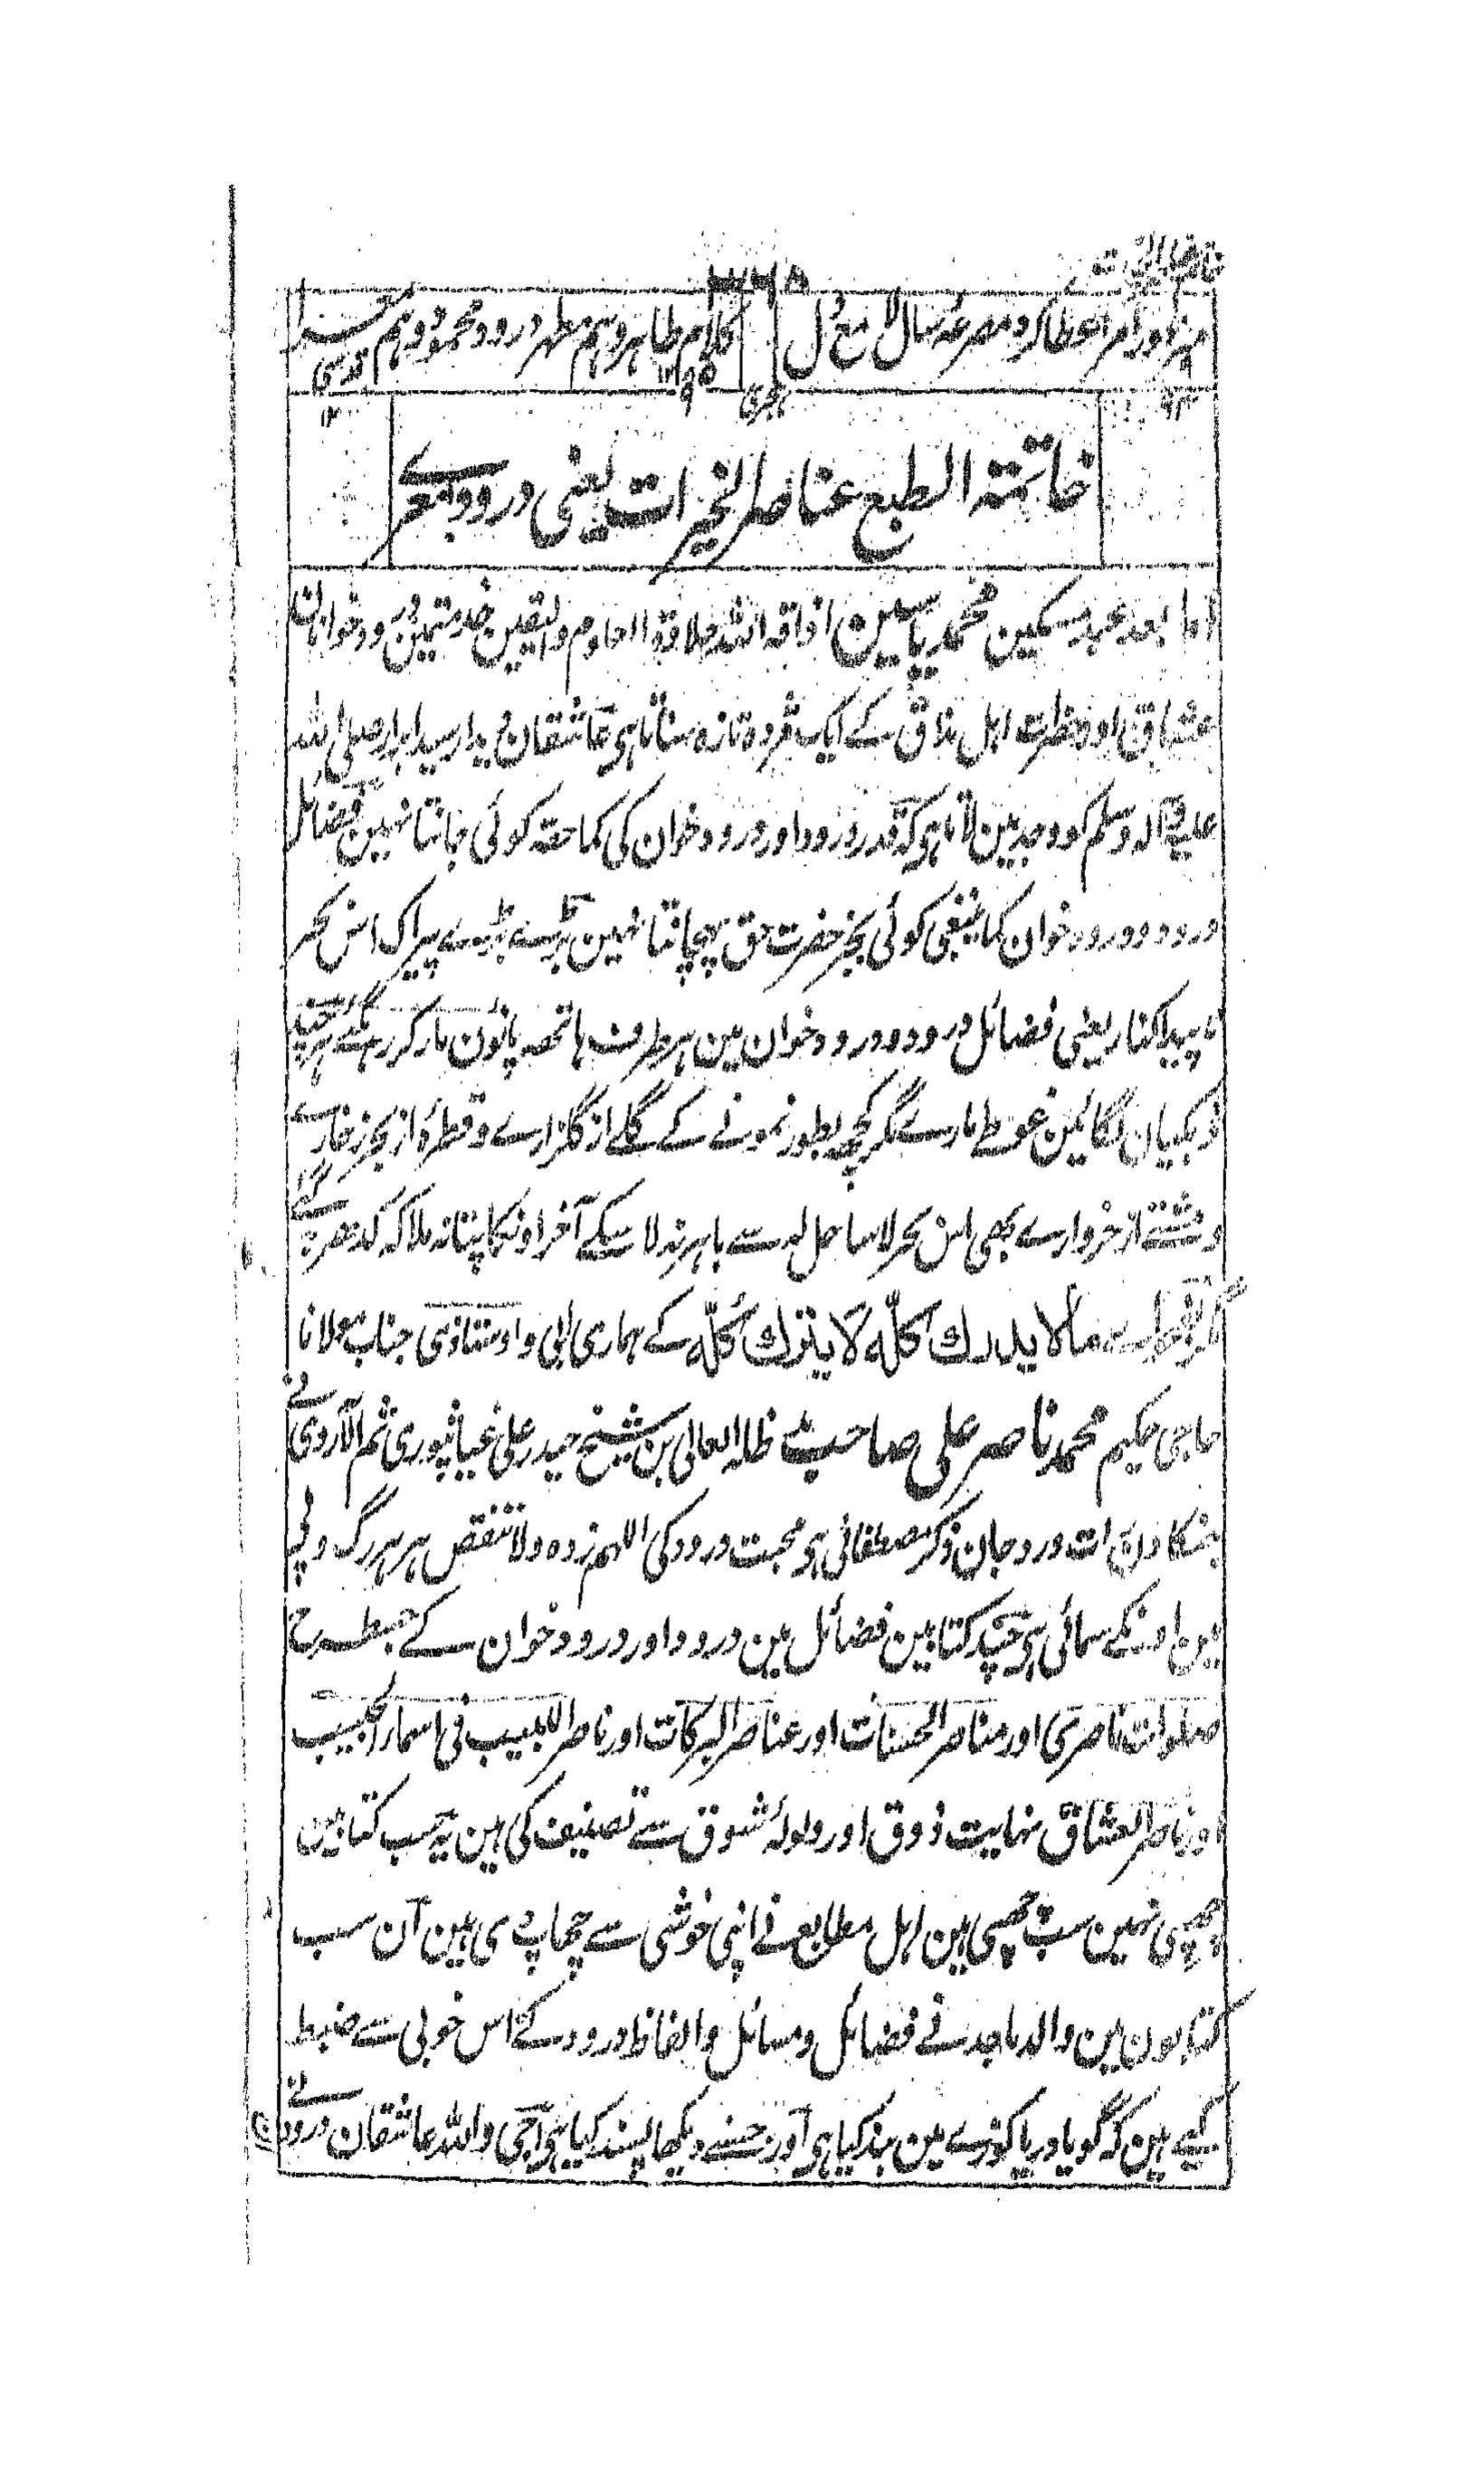 ۳۶۵
مرا عطا کرد مصرعہ سال کلام طاہر و ہم مطہر درود محمود و ہم
ہجری
خاتمۃ الطبع عناصر الخیرات یعنی درود بحر
اما بعد عبد مسکین محمد یاسین اذاقہ اللہ حلاوۃ والیقین خدمتمین درود خوانان
عشاق اور حضرت اہل مذاق کے ایک مژدہ تازہ سناتا ہی عاشقان دیدار سید ابرار صلی اللہ
علیہ وآلہ وسلم کو وجد مین لاتا ہی کہ قدر درود اور درود خوان کی کما حقہ کوئی جانتا نہین فضائل
درود و درود خوان کما ینبغی کوئی بجز حضرت حق پہچانتا نہین بڑے بڑے پیراک اس بحر
ناپیدا کنار یعنی فضائل درود و درود خوان مین ہر طرف ہاتھہ پانون مار کر رہگئے ہر چند
ڈبکیان لگائین غوطے مارے مگر کچھ بطور نمونے کے گلے از گلزارے و قطرۂ از بحر زخارے
و مشتے از خروارے بھی اس بحر لا ساحل لہ سے باہر نہ لا سکے آخر اونکا پتا نہ ملا کہ کدھر گئے
مگر بفحواے مالا یدرک کلّہ لا یترک کُلّہ کے ہماری ابی و اوستاذی جناب مولانا
حاجی حکیم محمد ناصر علی صاحب مد ظلہ العالی بن شیخ حیدر علی غیاثپوری ثم الآروی نے
جنکا دن رات ورد جان ذکر مصطفائی ہی محبت درود کی اللہم زدہ ولا تنقص ہر ہر رگ و پی
مین اونکے سمائی ہی چند کتابین فضائل مین درود اور درود خوان کے جسطرح
صلوات ناصری اور عناصر الحسنات اور عناصر البرکات اور ناصر اللبیب فی اسماء الحبیب
اور ناصر العشاق نہایت ذوق اور ولولۂ شوق سے تصنیف کی ہین یہ سب کتابین
چھپی نہین سب چھپی ہین اہل مطابع نے اپنی خوشی سے چھاپ دی ہین ان سب
کتابون مین والد ماجد نے فضائل و مسائل و الفاظ درود کے اس خوبی سے ضبط
کیے ہین کہ گویا دریا کوزے مین بند کیا ہی اور جسنے دیکھا پسند کیا ہی اجی واللہ عاشقان درود نے